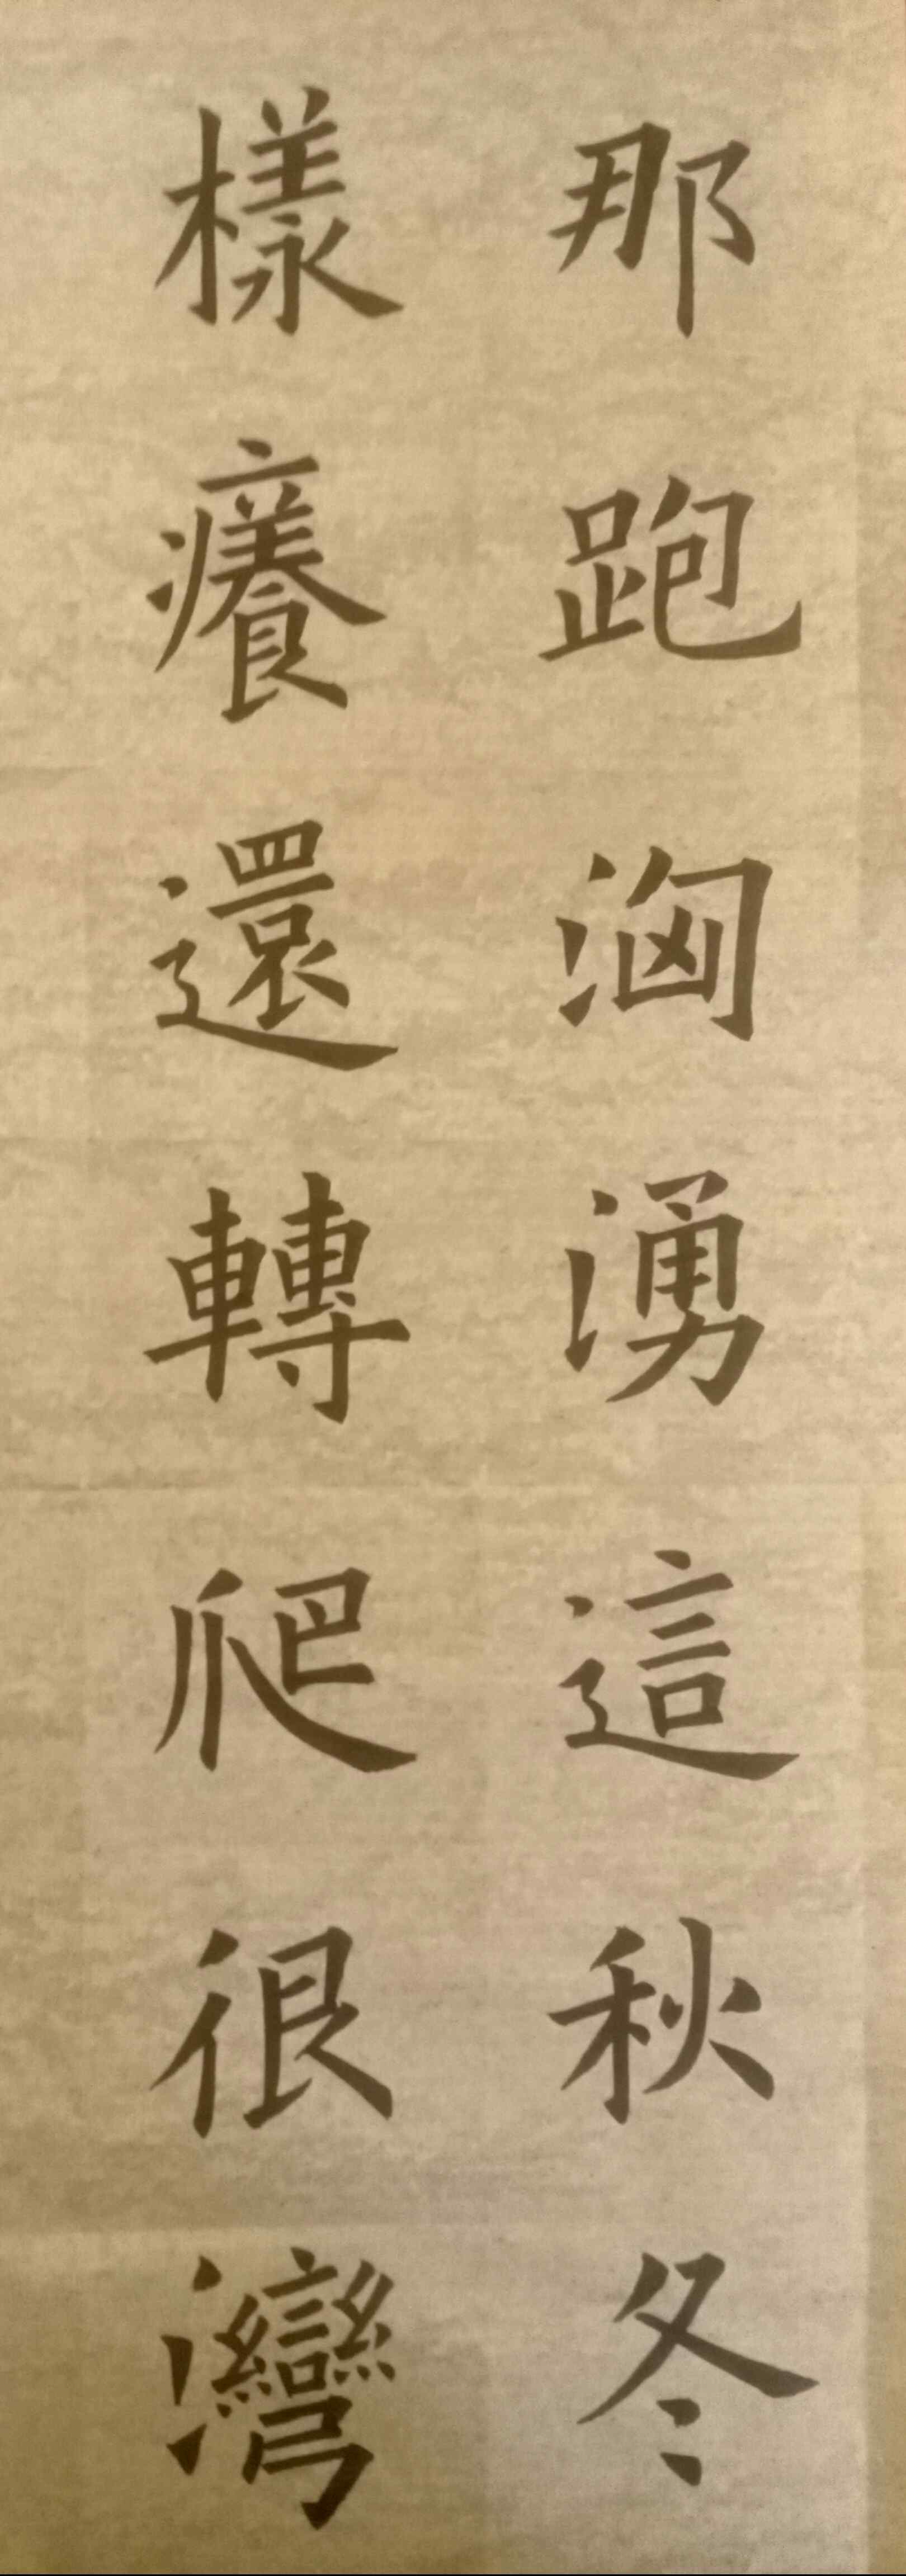 那跑洶湧這秋冬
樣癢還轉爬很灣